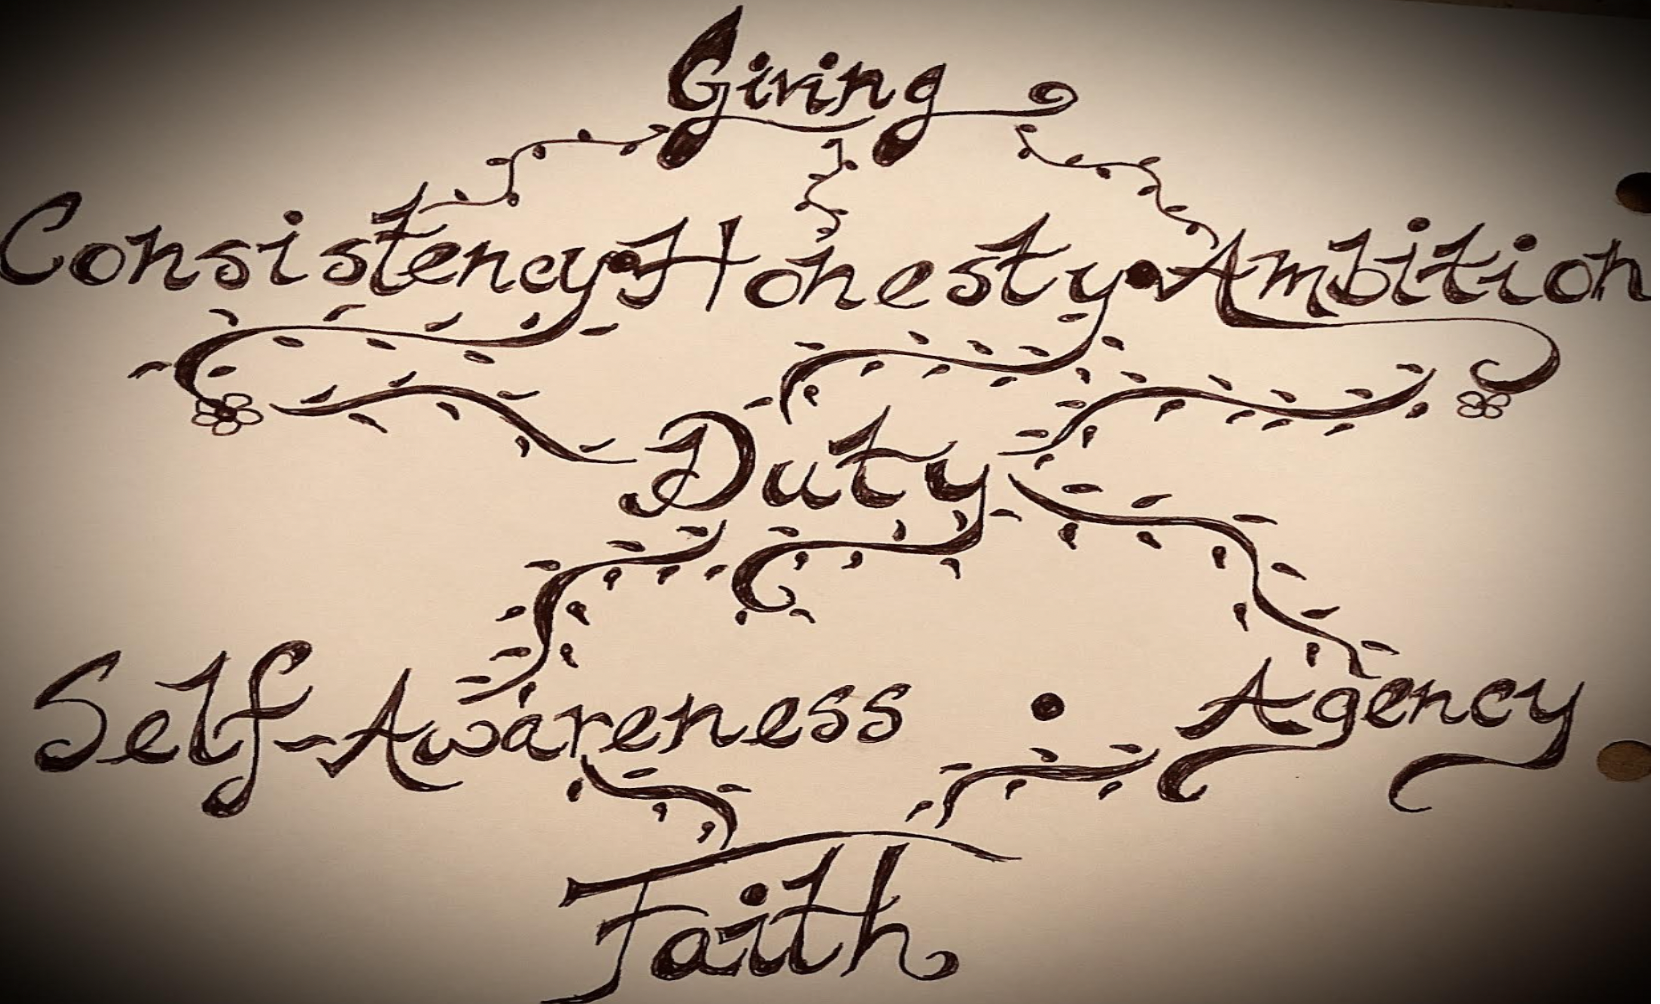 Giving
Consistency • Honesty • Ambition
Duty
Self-Awareness • Agency
Faith